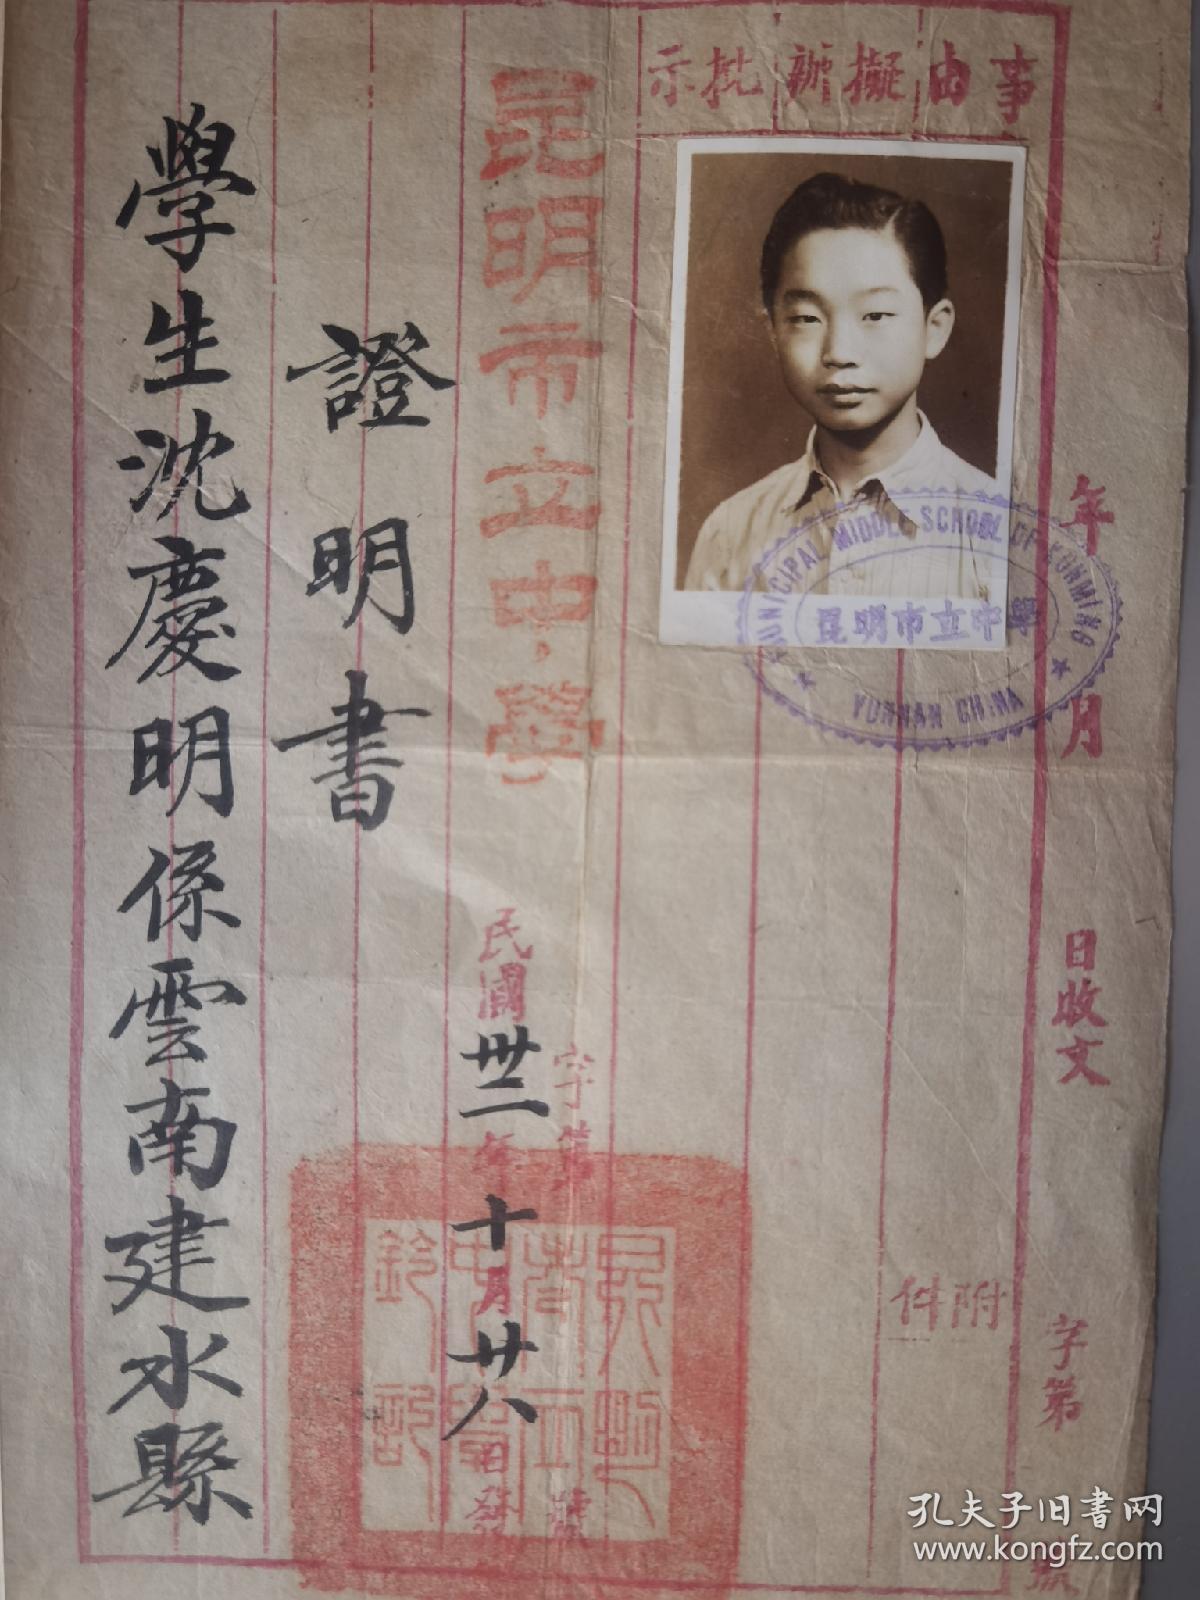 事由擬辦批示
年月日收文字第號
附件
昆明市立中學
民國卅二年十月廿八日發
字第號
證明書
學生沈慶明係雲南建水縣
MUNICIPAL MIDDLE SCHOOL OF KUNMING
昆明市立中學
YUNNAN CHINA
昆明市立中學鈐記
孔夫子旧书网
www.kongfz.com